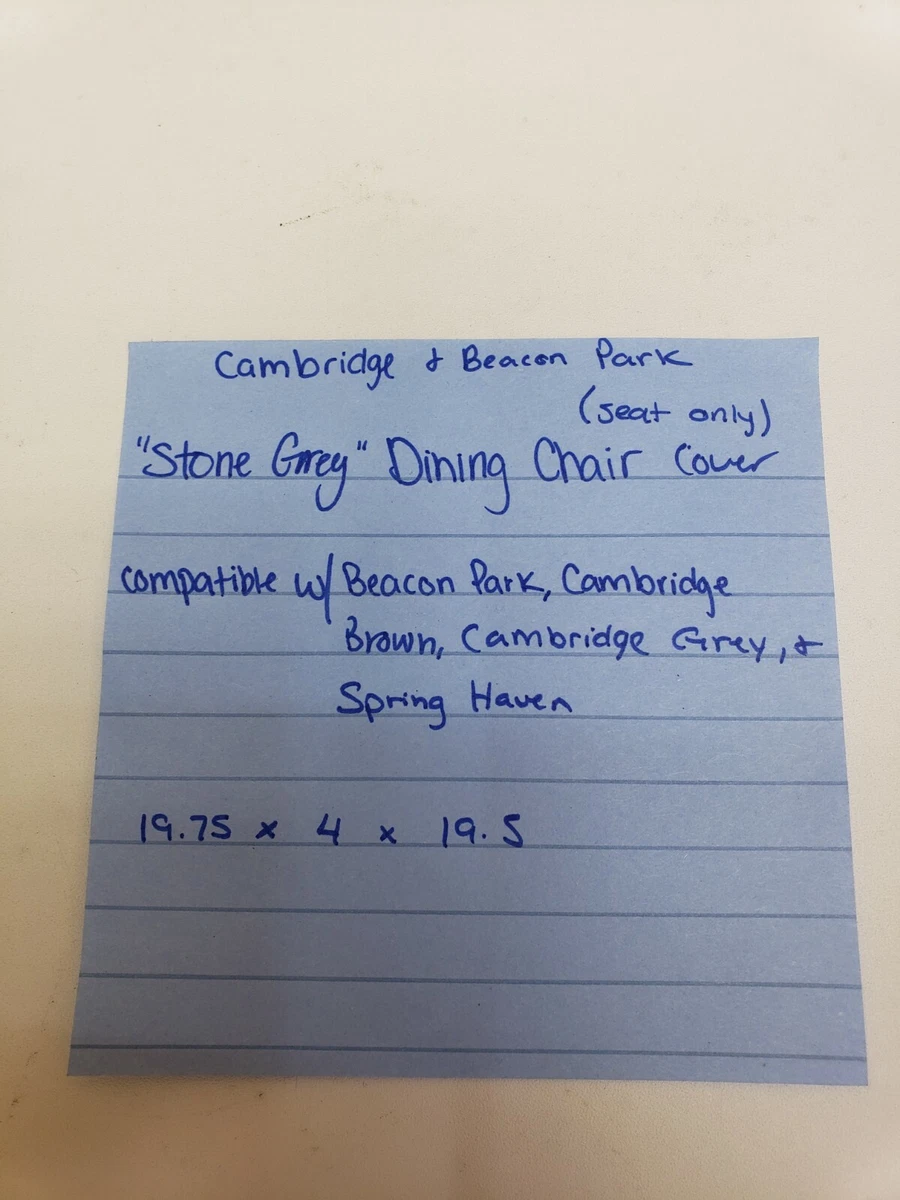 Cambridge & Beacon Park
(seat only)
"Stone Grey" Dining Chair Cover
compatible w/ Beacon Park, Cambridge
Brown, Cambridge Grey, &
Spring Haven
19.75 x 4 x 19.5